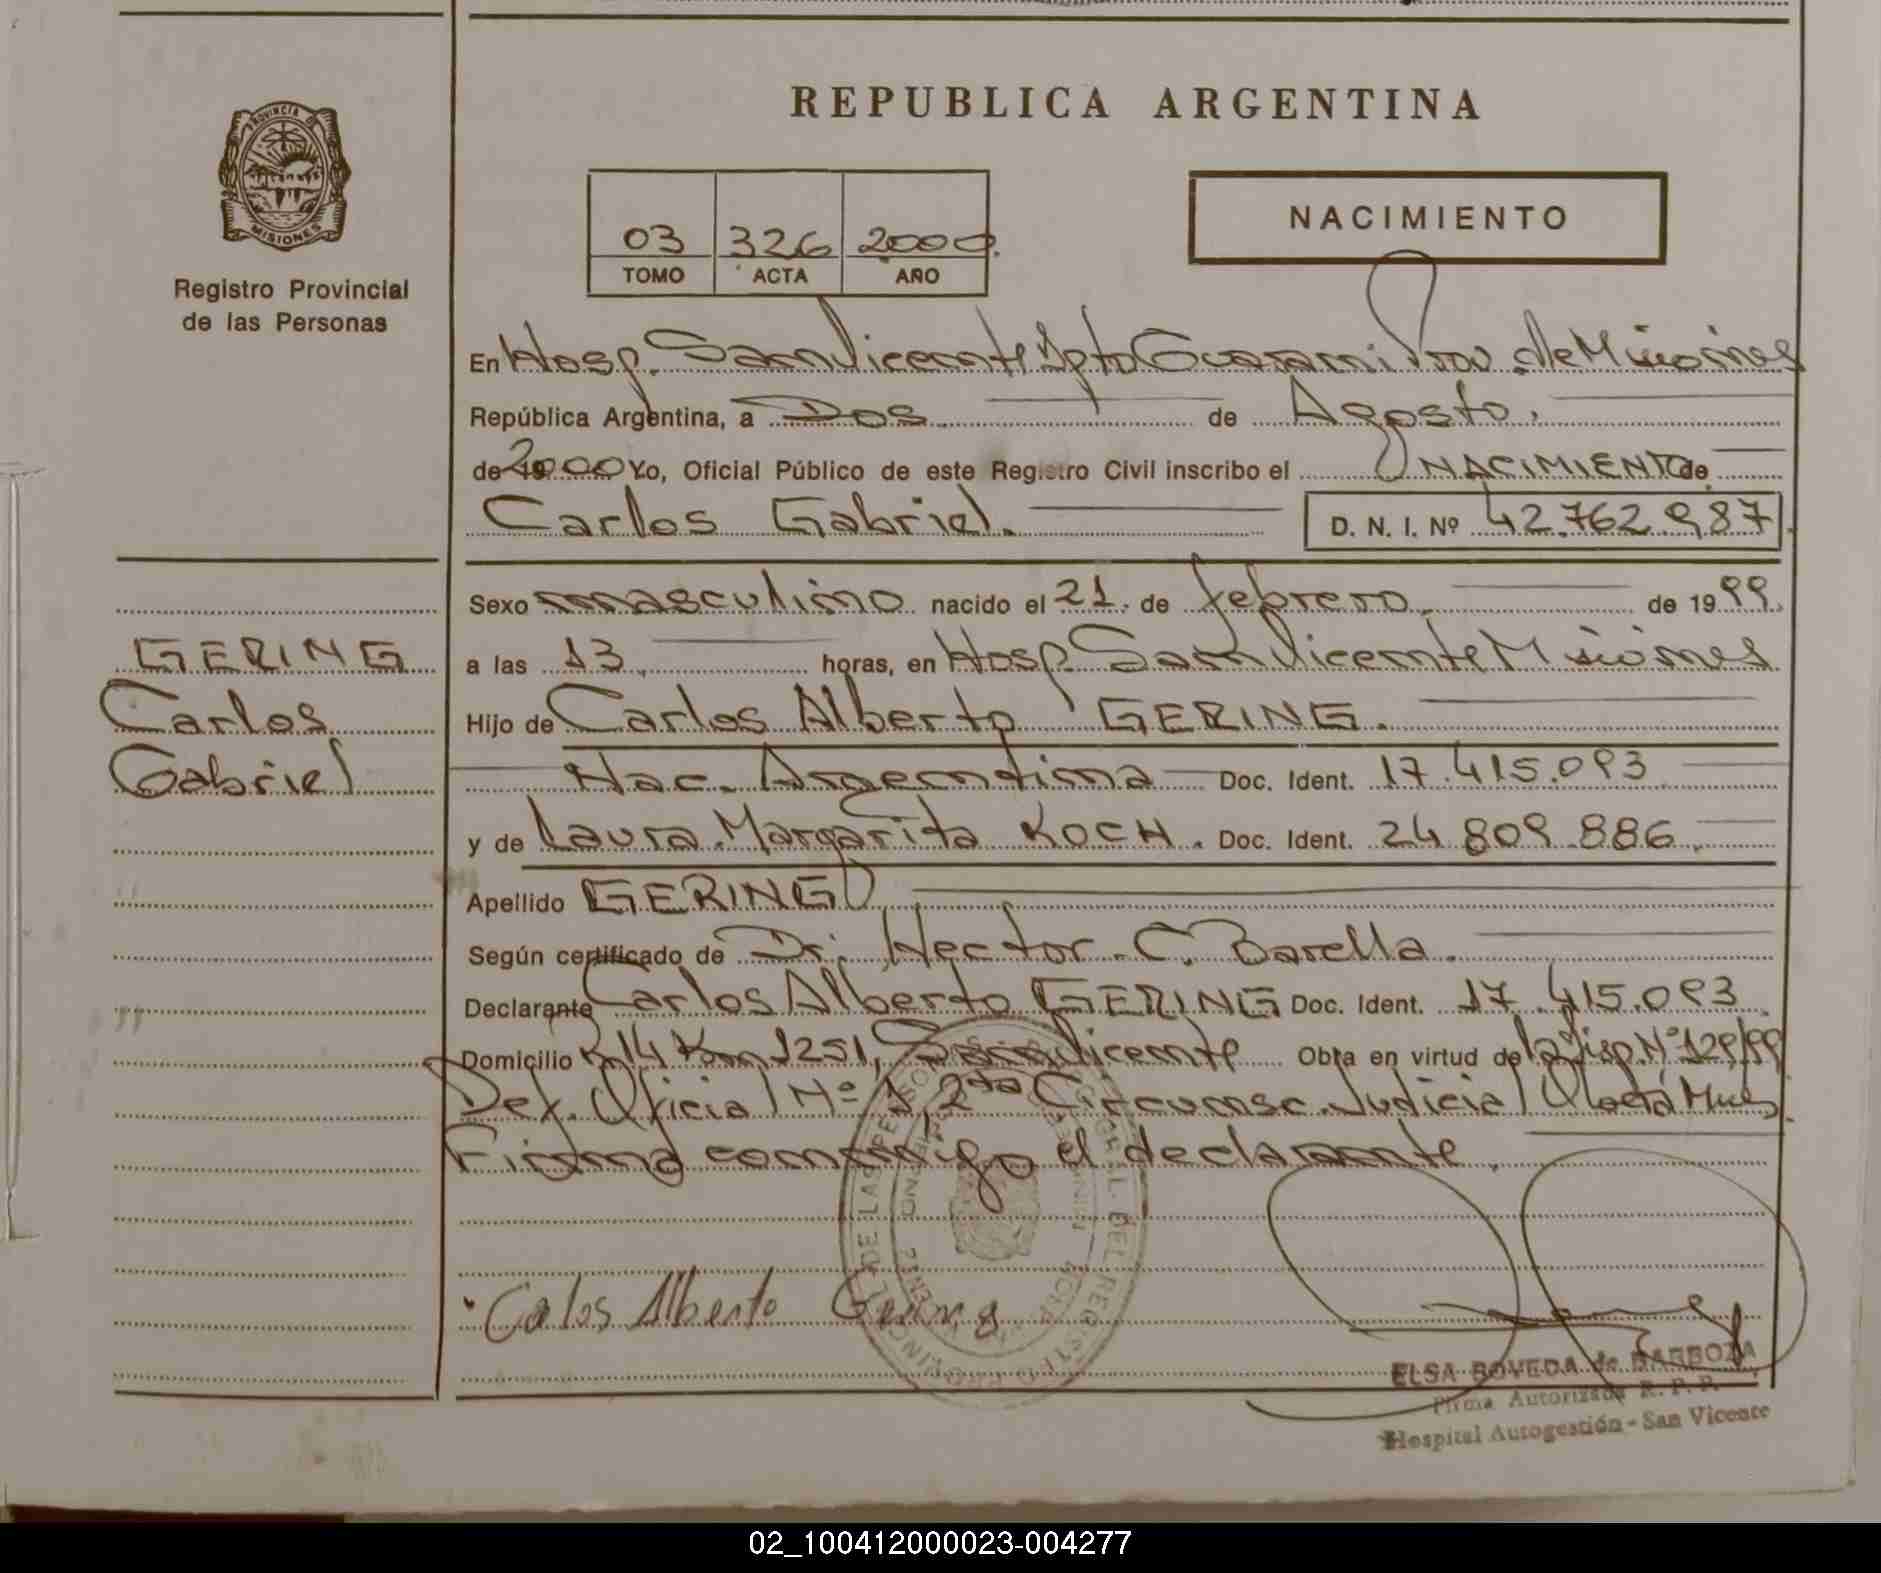 PROVINCIA DE
MISIONES
Registro Provincial
de las Personas
REPUBLICA ARGENTINA
03 326 2000
TOMO ACTA AÑO
NACIMIENTO
En Hosp. San Vicente Dpto Guarani Prov. de Misiones
República Argentina, a Dos de Agosto.
de 2000 Yo, Oficial Público de este Registro Civil inscribo el NACIMIENTO de
Carlos Gabriel. D. N. I. Nº 42.762.987
Sexo masculino nacido el 21. de febrero. de 1999.
a las 13, horas, en Hosp. San Vicente Misiones
Hijo de Carlos Alberto GERING.
Nac. Argentina Doc. Ident. 17.415.093
y de Laura Margarita KOCH. Doc. Ident. 24.809.886.
Apellido GERING
Según certificado de Dr. Hector C. Barella.
Declarante Carlos Alberto GERING Doc. Ident. 17.415.093
Domicilio R14 Km 1251, San Vicente Obra en virtud de la Disp. Nº 129/99
Def. Oficial Nº 1, 2da Circunsc. Judicial Oberá Mnes.
Firma conmigo el declarante.
GERING
Carlos
Gabriel
Calos Alberto Gering
ELSA BOVEDA de BARBOZA
Firma Autorizada R. P. P.
Hospital Autogestión - San Vicente
02_100412000023-004277